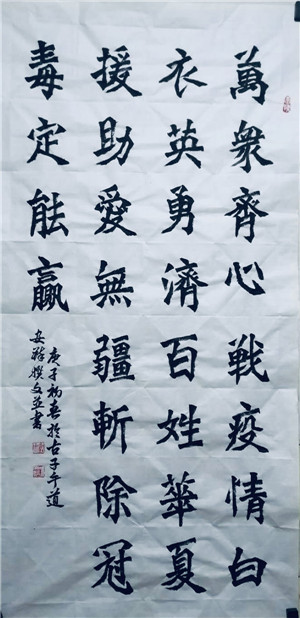 萬衆齊心戰疫情白
衣英勇濟百姓華夏
援助愛無疆斬除冠
毒定能贏
庚子初春於古子午道
安静撰文並書